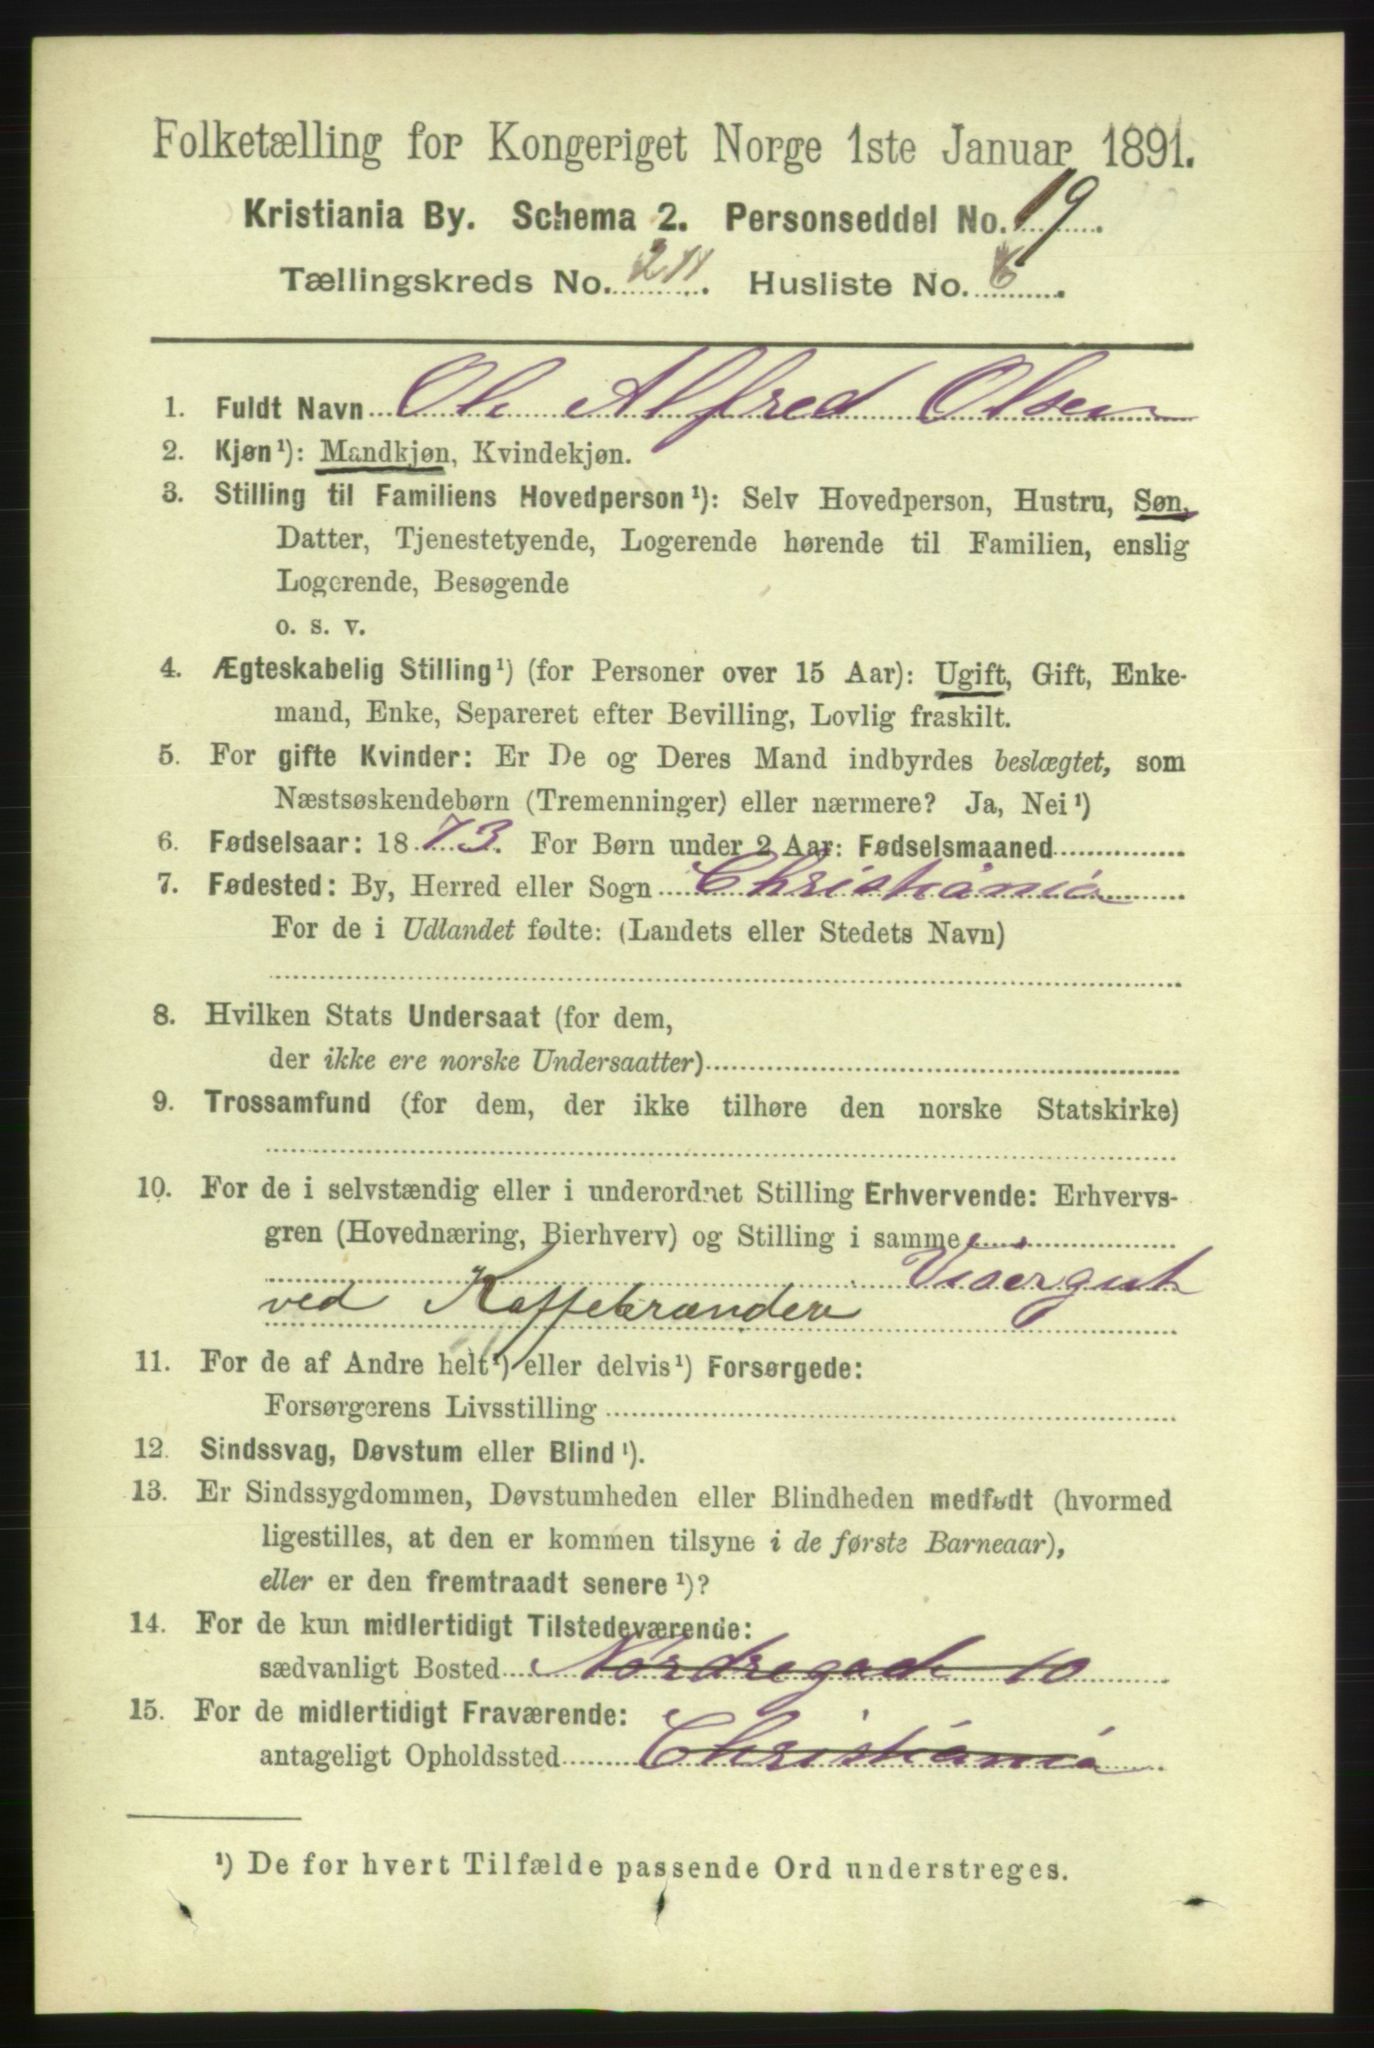 Folketælling for Kongeriget Norge 1ste Januar 1891.
Kristiania By. Schema 2. Personseddel No. 19.
Tællingskreds No. 211. Husliste No. 6.
1. Fuldt Navn Ole Alfred Olsen
2. Kjøn¹): Mandkjøn, Kvindekjøn.
3. Stilling til Familiens Hovedperson¹): Selv Hovedperson, Hustru, Søn,
Datter, Tjenestetyende, Logerende hørende til Familien, enslig
Logerende, Besøgende
o. s. v.
4. Ægteskabelig Stilling¹) (for Personer over 15 Aar): Ugift, Gift, Enke-
mand, Enke, Separeret efter Bevilling, Lovlig fraskilt.
5. For gifte Kvinder: Er De og Deres Mand indbyrdes beslægtet, som
Næstsøskendebørn (Tremenninger) eller nærmere? Ja, Nei¹)
6. Fødselsaar: 1873. For Børn under 2 Aar: Fødselsmaaned
7. Fødested: By, Herred eller Sogn Christiania
For de i Udlandet fødte: (Landets eller Stedets Navn)
8. Hvilken Stats Undersaat (for dem,
der ikke ere norske Undersaatter)
9. Trossamfund (for dem, der ikke tilhøre den norske Statskirke)
10. For de i selvstændig eller i underordnet Stilling Erhvervende: Erhvervs-
gren (Hovednæring, Bierhverv) og Stilling i samme
Visergut
ved Kaffebrænderi
11. For de af Andre helt¹) eller delvis¹) Forsørgede:
Forsørgerens Livsstilling
12. Sindssvag, Døvstum eller Blind¹).
13. Er Sindssygdommen, Døvstumheden eller Blindheden medfødt (hvormed
ligestilles, at den er kommen tilsyne i de første Barneaar),
eller er den fremtraadt senere¹)?
14. For de kun midlertidigt Tilstedeværende:
sædvanligt Bosted Nordregade 10
15. For de midlertidigt Fraværende:
antageligt Opholdssted Christiania
¹) De for hvert Tilfælde passende Ord understreges.